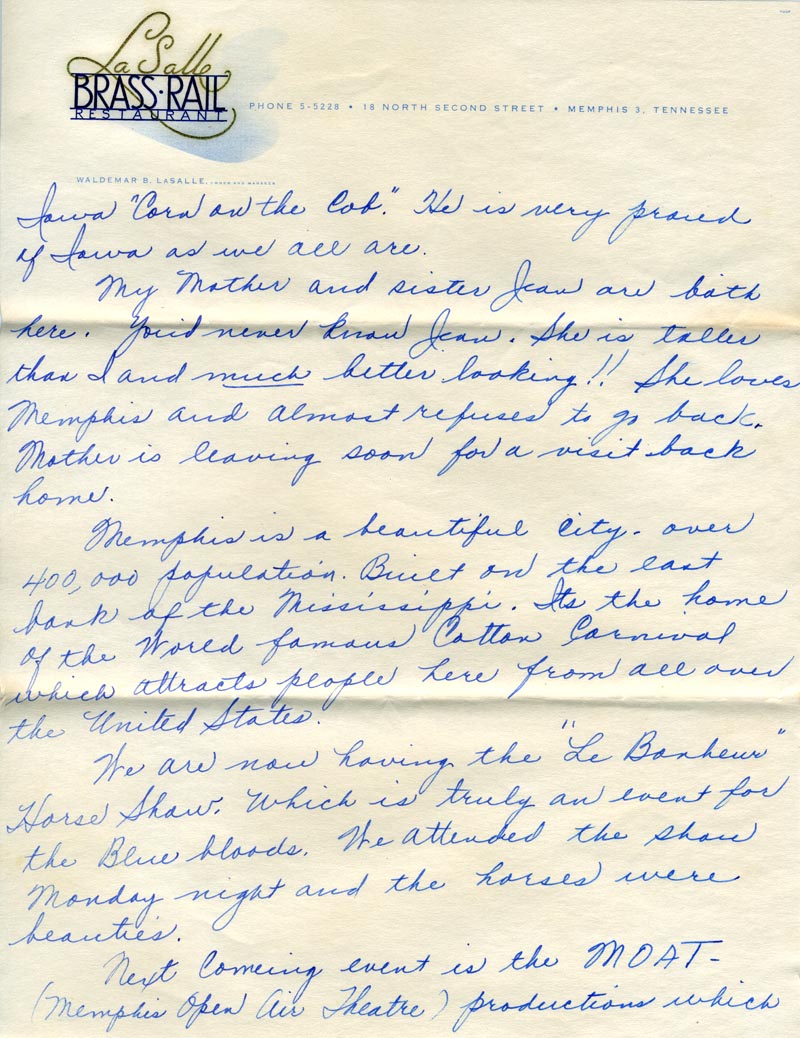 LaSalle
BRASS·RAIL
RESTAURANT
PHONE 5-5228 • 18 NORTH SECOND STREET • MEMPHIS 3, TENNESSEE
WALDEMAR B. LASALLE, OWNER AND MANAGER
Iowa "Corn on the Cob." He is very proud
of Iowa as we all are.
My Mother and sister Jean are both
here. You'd never know Jean. She is taller
than I and much better looking!! She loves
Memphis and almost refuses to go back.
Mother is leaving soon for a visit back
home.
Memphis is a beautiful city. over
400,000 population. Built on the east
bank of the Mississippi. Its the home
of the World famous Cotton Carnival
which attracts people here from all over
the United States.
We are now having the "Le Bonheur"
Horse Show. Which is truly an event for
the Blue bloods. We attended the show
Monday night and the horses were
beauties.
Next Comeing event is the MOAT-
(Memphis Open Air Theatre) productions which